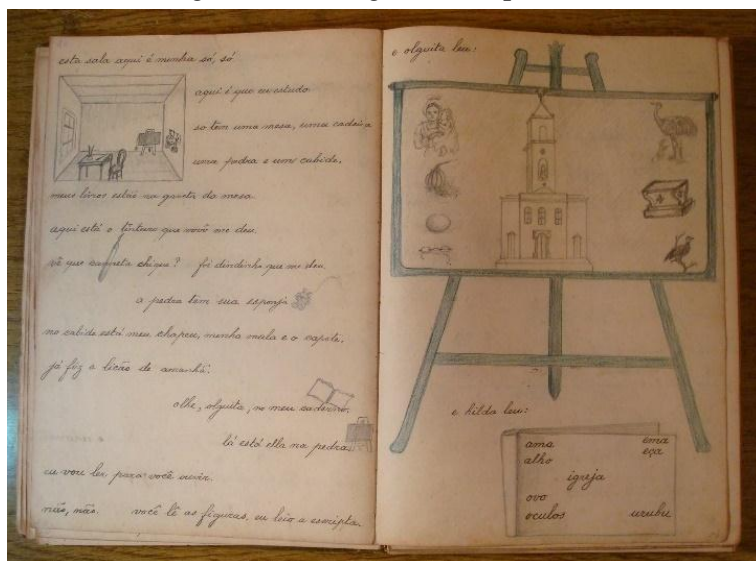 esta sala aqui é minha só, só.
aqui é que eu estudo
só tem uma mesa, uma cadeira
uma pedra e um cabide.
meus livros estão na gaveta da mesa.
aqui está o tinteiro que vovô me deu.
vê que caneta chique? foi dindinho que me deu.
a pedra tem sua esponja
no cabide está meu chapeu, minha mala e o capote.
já fiz a lição de amanhã.
olhe, olguita, no meu caderno.
lá está ella na pedra.
eu vou ler para você ouvir.
não, não. você lê as figuras, eu leio a escripta.
e olguita leu:
e hilda leu:
ama ema
alho eça
igreja
ovo
oculos urubu